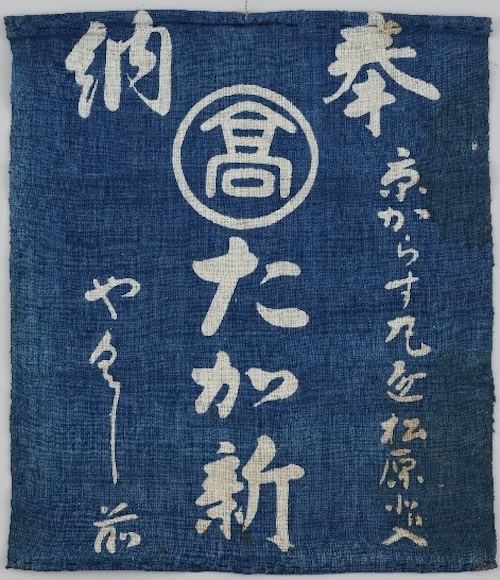 奉納
京からす丸通松原北入
髙
たか新
やくし前